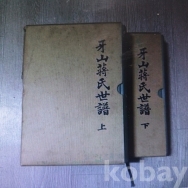 牙山蔣氏世譜 上
牙山蔣氏世譜 下
kobay